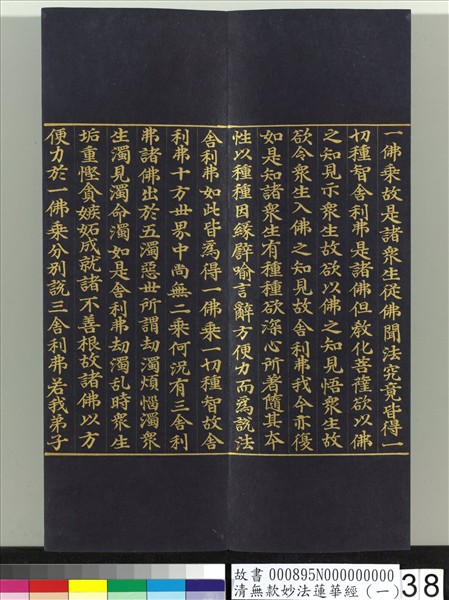 一佛乘故是諸衆生從佛聞法究竟皆得一
切種智舍利弗是諸佛但教化菩薩欲以佛
之知見示衆生故欲以佛之知見悟衆生故
欲令衆生入佛之知見故舍利弗我今亦復
如是知諸衆生有種種欲深心所著隨其本
性以種種因緣譬喻言辭方便力而為說法
舍利弗如此皆為得一佛乘一切種智故舍
利弗十方世界中尚無二乘何況有三舍利
弗諸佛出於五濁惡世所謂劫濁煩惱濁衆
生濁見濁命濁如是舍利弗劫濁亂時衆生
垢重慳貪嫉妬成就諸不善根故諸佛以方
便力於一佛乘分別說三舍利弗若我弟子
故書 000895N000000000
清無款妙法蓮華經（一）
38